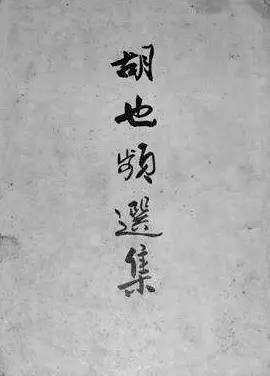 胡也頻選集